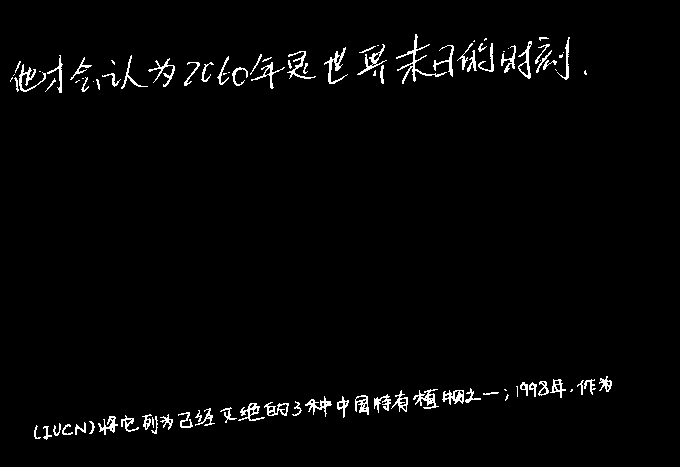 他才会认为2060年是世界末日的时刻.
(IUCN)将它列为已经灭绝的3种中国特有植物之一;1998年,作为